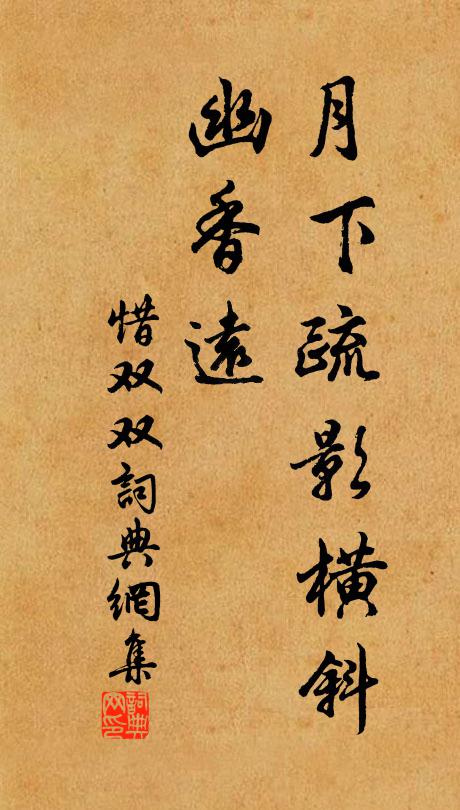 月下疏影橫斜
幽香遠
惜双双詞典網集
詞典网印